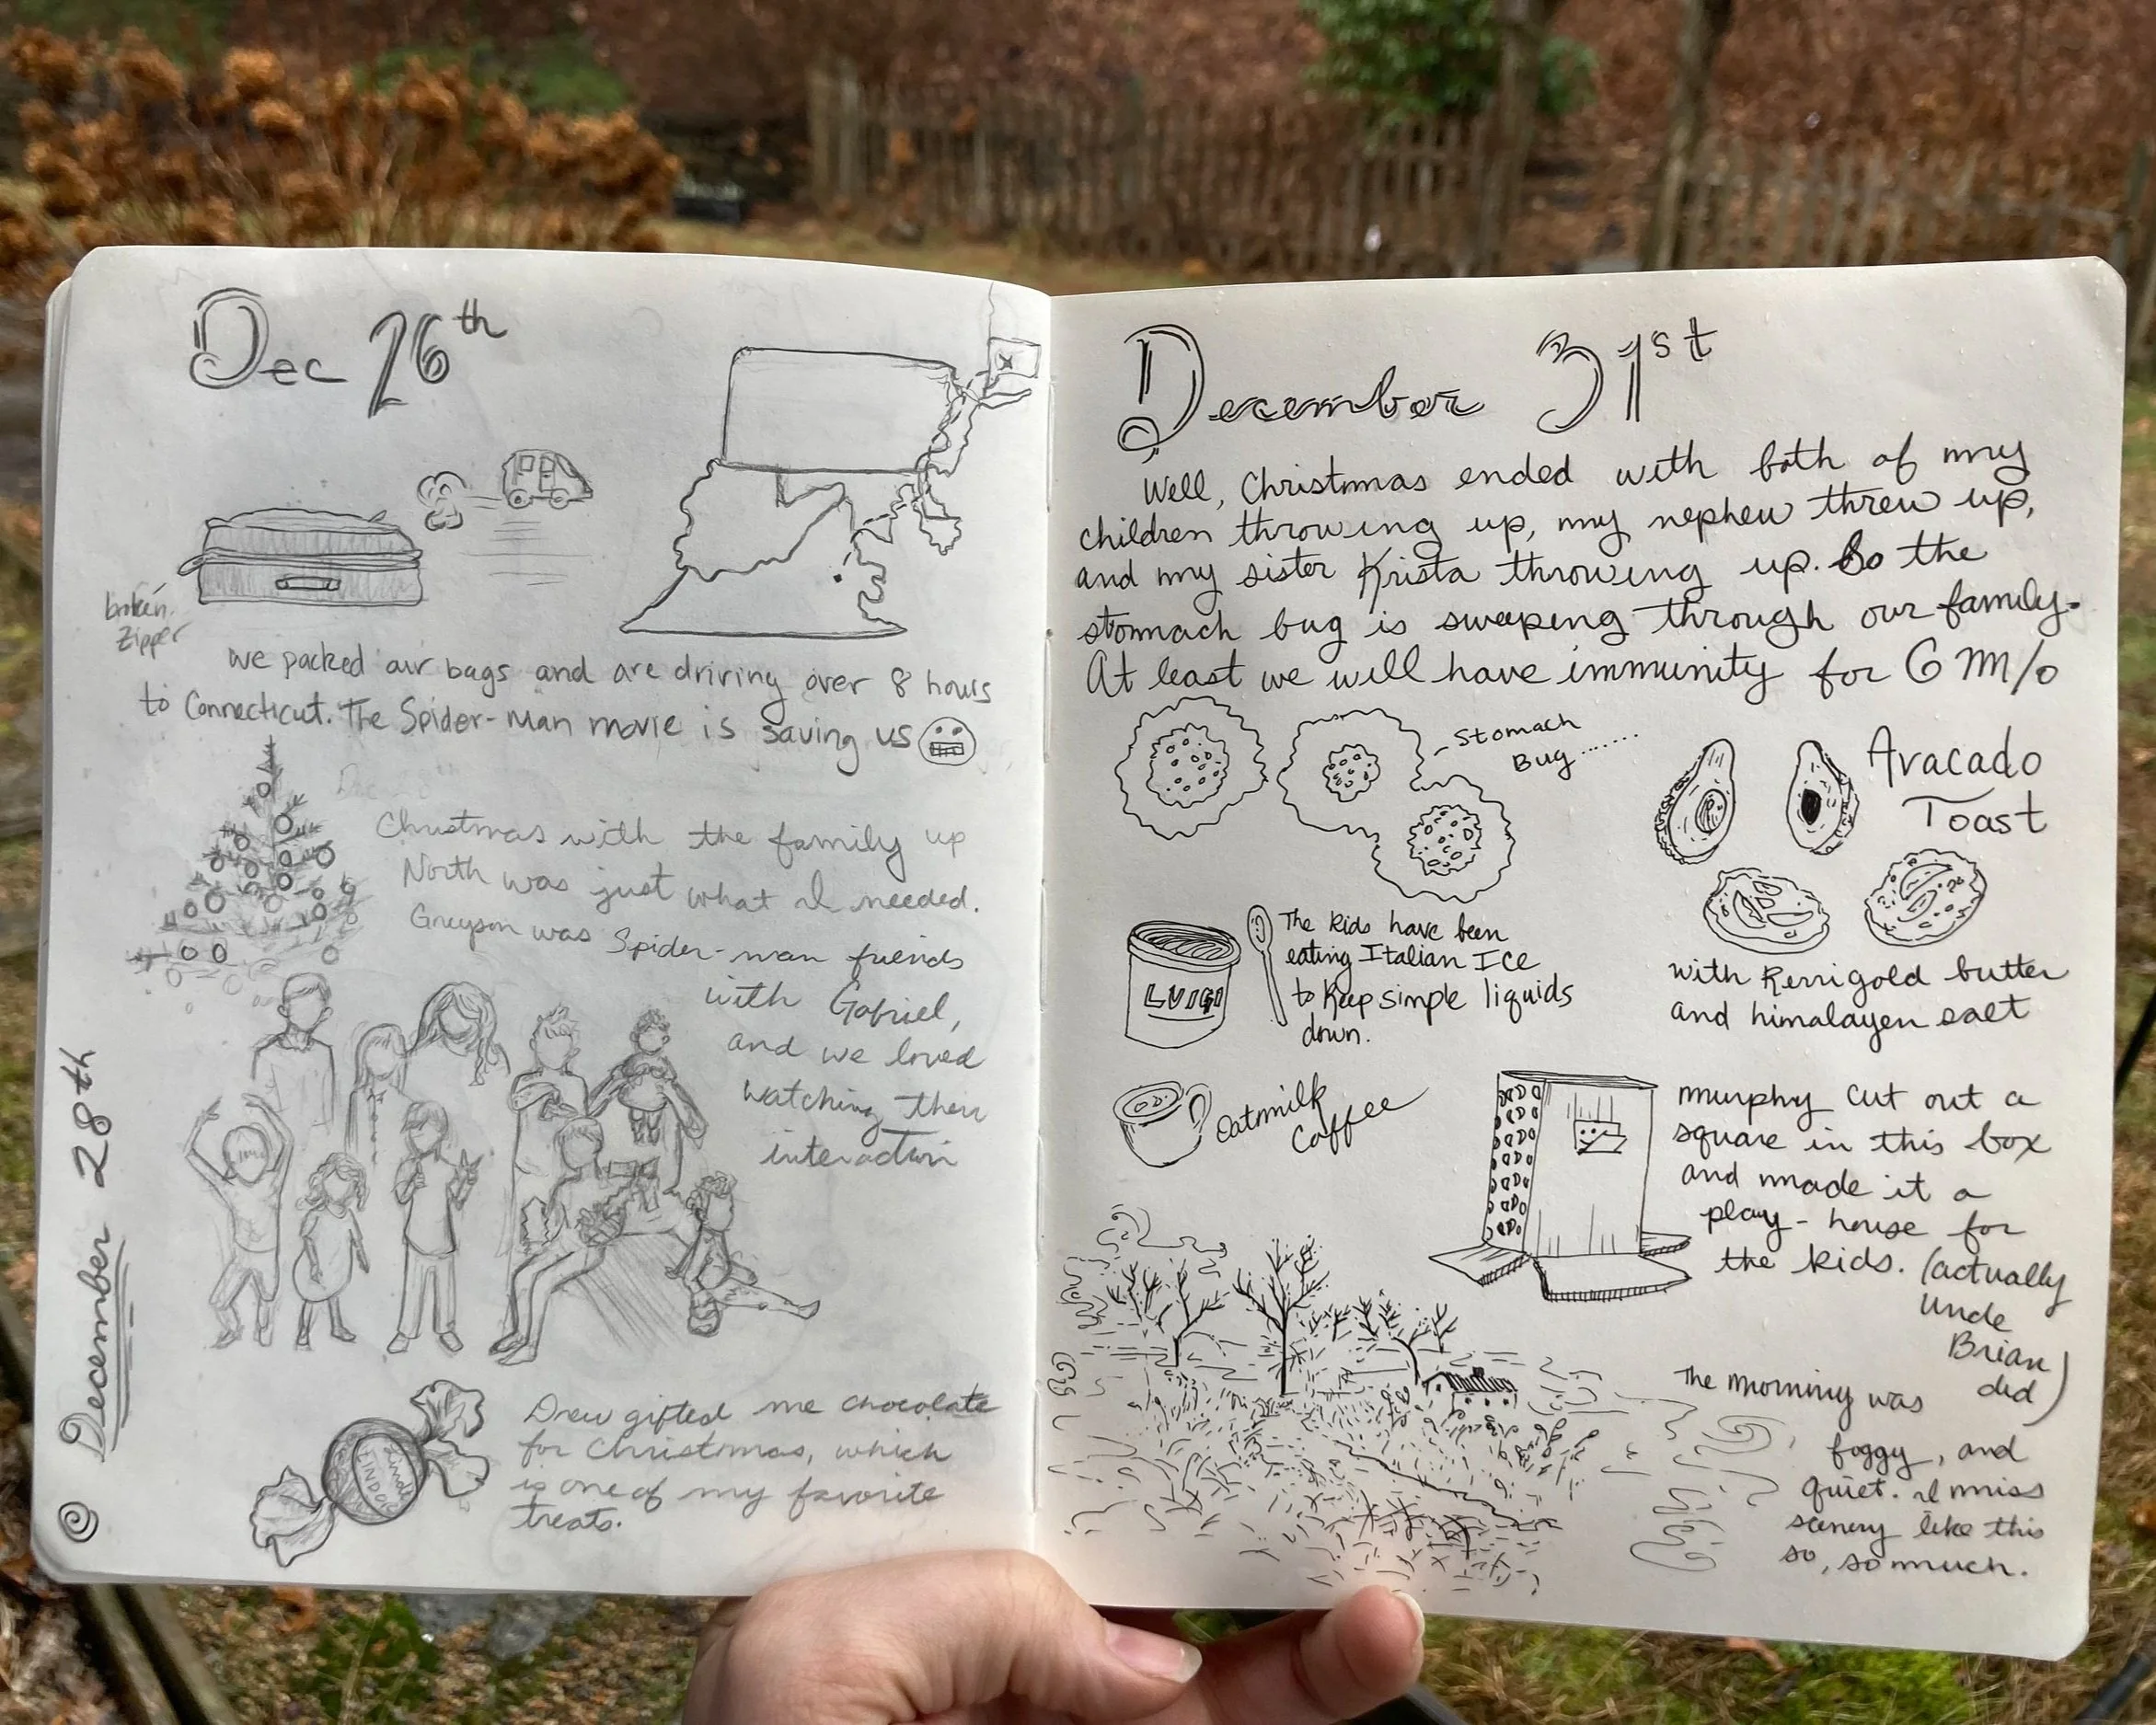 Dec 26th
broken
zipper
we packed our bags and are driving over 8 hours
to Connecticut. The Spider-Man movie is saving us
Christmas with the family up
North was just what I needed.
Greyson was Spider-man friends
with Gabriel,
and we loved
watching their
interaction
December 28th
Lindt
LINDOR
Drew gifted me chocolate
for Christmas, which
is one of my favorite
treats.
December 31st
Well, Christmas ended with both of my
children throwing up, my nephew threw up,
and my sister Krista throwing up. So the
stomach bug is sweeping through our family.
At least we will have immunity for 6 m/o
Stomach
Bug.......
Avacado
Toast
with Kerrigold butter
and himalayen salt
LUIGI
The kids have been
eating Italian Ice
to keep simple liquids
down.
Oatmilk
Coffee
murphy cut out a
square in this box
and made it a
play-house for
the kids. (actually
Uncle
Brian
did)
The morning was
foggy, and
quiet. I miss
scenery like this
so, so much.